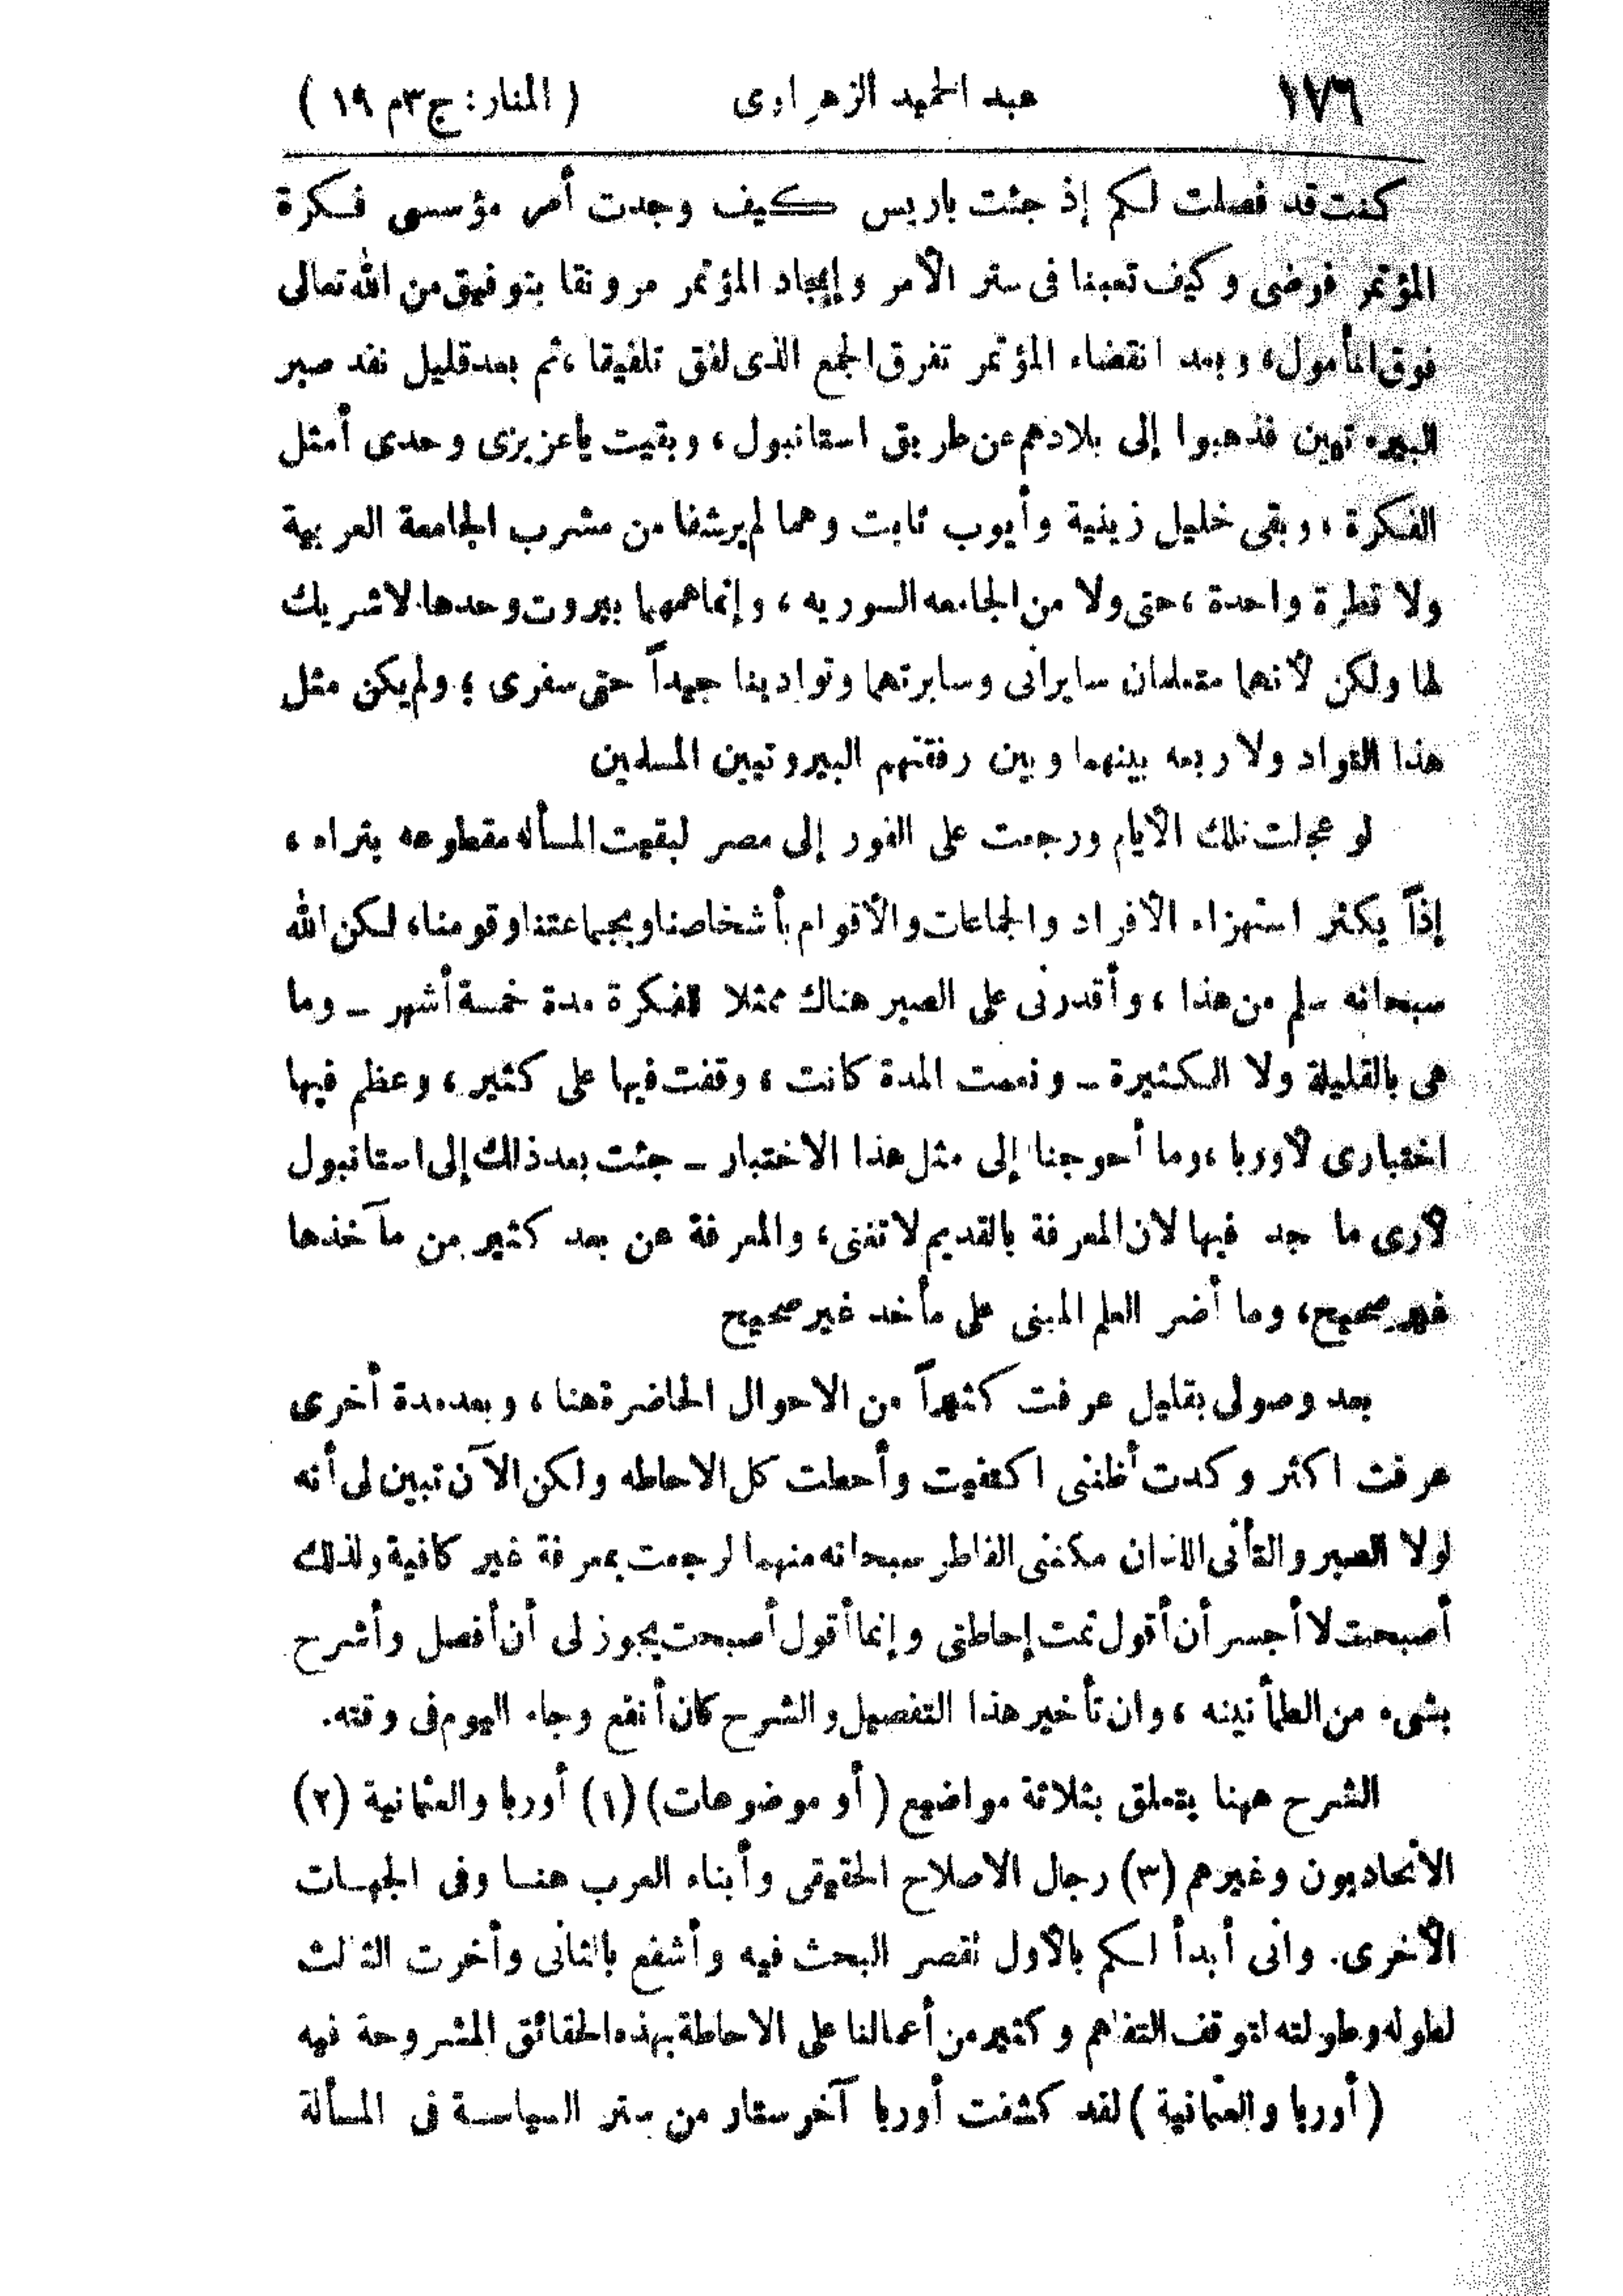 ١٧٦ عبد الحميد الزهراوى ( المنار : ج ٣ م ١٩ )
كنت قد فصلت لكم إذ جئت باريس كيف وجدت أمر مؤسسى فكرة
المؤتمر فوضى وكيف تعبنا فى ستر الأمر وإيجاد المؤتمر مرونقا بتوفيق من الله تعالى
فوق المأمول، وبعد انقضاء المؤتمر تفرق الجمع الذى لفق تلفيقا، ثم بعد قليل نفد صبر
البيروتيين فذهبوا إلى بلادهم عن طريق استانبول، وبقيت ياعزيزى وحدى أمثل
الفكرة، وبقى خليل زينية وأيوب ثابت وهما لم يرشفا من مشرب الجامعة العربية
ولا قطرة واحدة، حتى ولا من الجامعه السوريه، وإنما همهما بيروت وحدها لاشريك
لها ولكن لأنهما متعلمان سايرانى وسايرتهما وتوادينا جيداً حتى سفرى؛ ولم يكن مثل
هذا التواد ولا ربعه بينهما وبين رفقتهم البيروتيين المسلمين
لو عجلت تلك الأيام ورجعت على الفور إلى مصر لبقيت المسأله مقطوعه بتراء،
إذاً يكثر استهزاء الأفراد والجماعات والأقوام بأشخاصنا وبجماعتنا وقومنا، لكن الله
سبحانه سلم من هذا، وأقدرنى على الصبر هناك ممثلا للفكرة مدة خمسة أشهر ـ وما
هى بالقليلة ولا الكثيرة ـ ونعمت المدة كانت، وقفت فيها على كثير، وعظم فيها
اختبارى لأوربا، وما أحوجنا إلى مثل هذا الاختبار ـ جئت بعد ذلك إلى استانبول
لأرى ما جد فيها لان المعرفة بالقديم لا تغنى، والمعرفة عن بعد كثير من مآخذها
غير صحيح، وما أضر العلم المبنى على مأخد غير صحيح
بعد وصولى بقليل عرفت كثيراً من الاحوال الحاضرة هنا، وبعد مدة أخرى
عرفت اكثر وكدت أظننى اكتفيت وأحطت كل الاحاطه ولكن الآن تبين لى أنه
لولا الصبر والتأنى اللذان مكننى الفاطر سبحانه منهما لرجعت بمعرفة غير كافية ولذلك
أصبحت لا أجسر أن أقول تمت إحاطتى وإنما أقول أصبحت يجوز لى أن أفصل وأشرح
بشىء من الطمأنينه، وان تأخير هذا التفصيل والشرح كان أنفع وجاء اليوم فى وقته.
الشرح ههنا يتعلق بثلاثة مواضيع ( أو موضوعات) (١) أوربا والعثمانية (٢)
الأتحاديون وغيرهم (٣) رجال الاصلاح الحقيقى وأبناء العرب هنا وفى الجهات
الأخرى. وانى أبدأ لكم بالأول لقصر البحث فيه وأشفع بالثانى وأخرت الثالث
لطوله وطولته لتوقف التفاهم وكثير من أعمالنا على الاحاطة بهذه الحقائق المشروحة فيه
( أوربا والعثمانية ) لقد كشفت أوربا آخر ستار من ستر السياسة فى المسألة